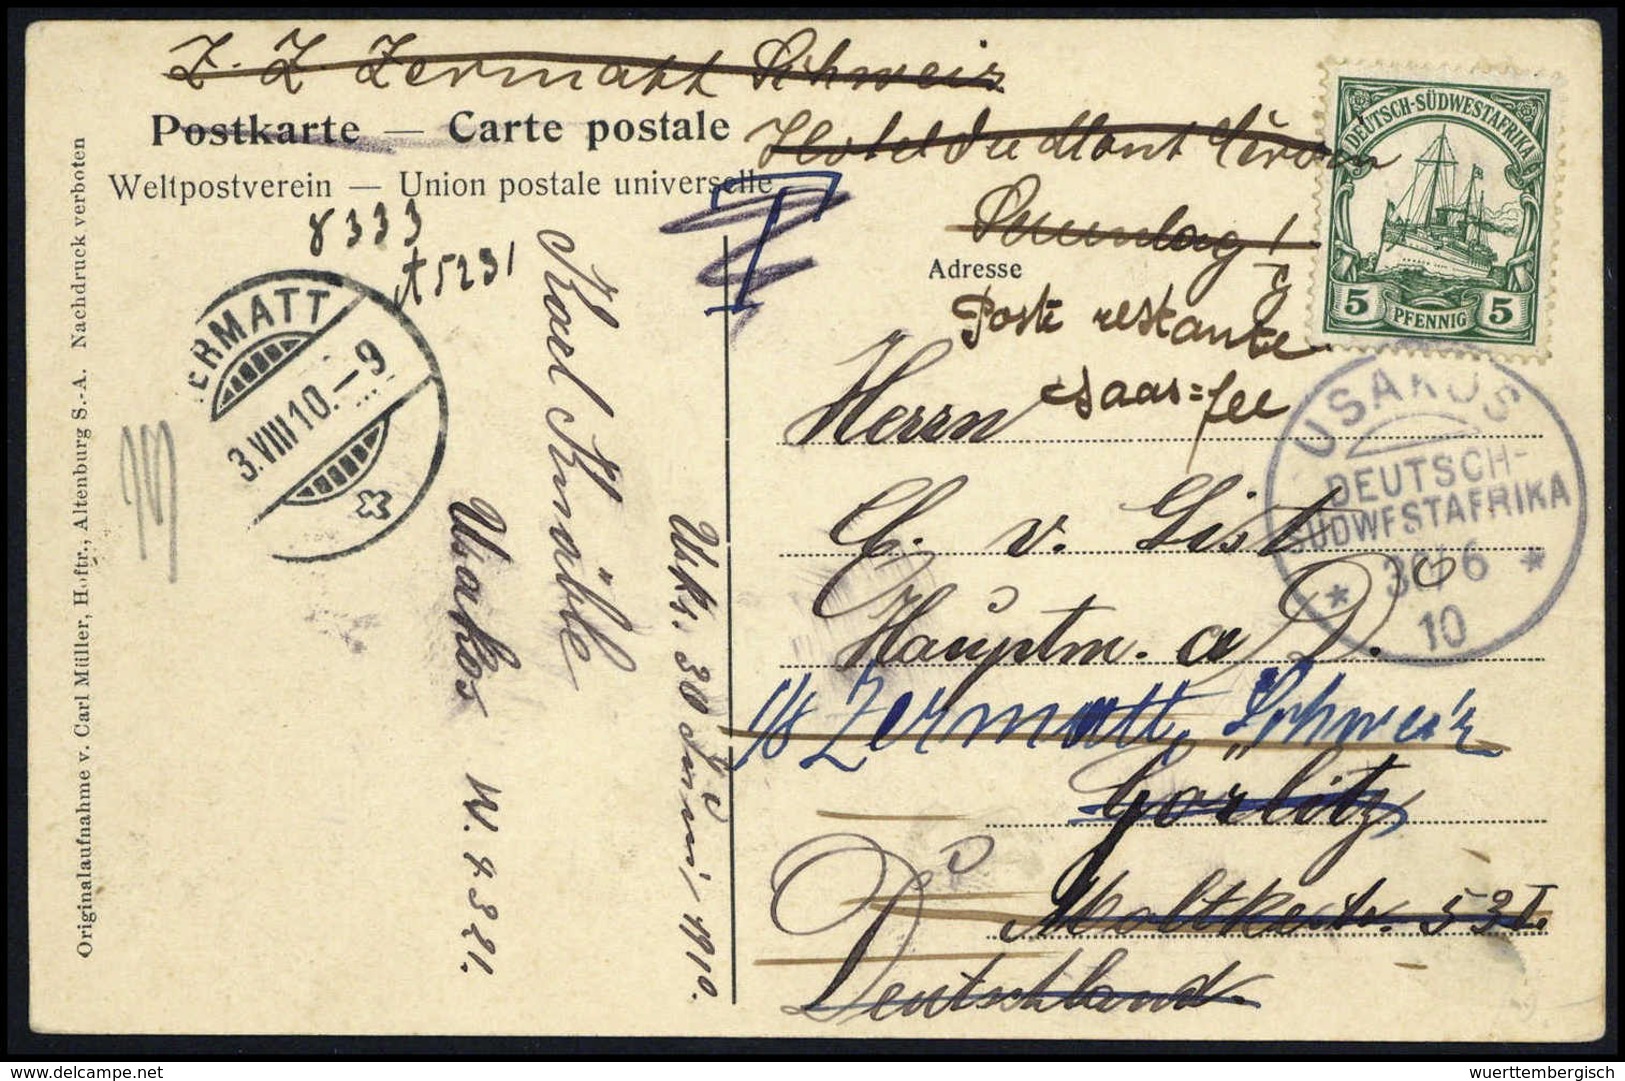 Z. Z. Zermatt Schweiz
Postkarte — Carte postale
Hotel du Mont Cervin
Weltpostverein — Union postale universelle
T
8333
A5231
Adresse
Poste restante
Saas=fee
Herrn
C. v. List
Hauptm. a D.
Zermatt, Schweiz
Görlitz
Moltkestr. 53 I.
Deutschland.
DEUTSCH-SÜDWESTAFRIKA
5 PFENNIG 5
USAKOS
DEUTSCH-
SÜDWESTAFRIKA
* 30/6 *
10
ERMATT
3.VIII10.–9
Karl Knäble
Usakos W. 8321.
Usk, 30 Juni, 1910.
Originalaufnahme v. Carl Müller, Hoftr., Altenburg S.-A. Nachdruck verboten
wuerttembergisch
delcampe.net